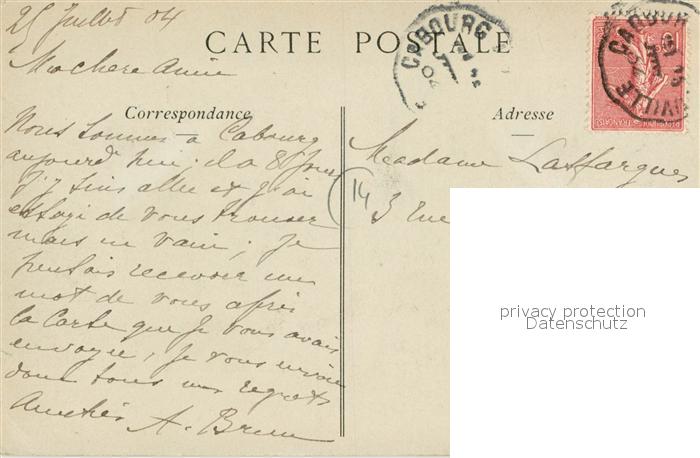 25 Juillet 04
CARTE POSTALE
CABOURG
04
CABOUR
VILLE
Ma chere Amie
Correspondance
Adresse
Nous sommes a Cabourg
aujourd hui. il a 8 jours
j'y suis allee et j'ai
essayé de vous trouver
mais en vain; je
pensais recevoir un
mot de vous après
la Carte que je vous avais
envoyée, je vous envoie
donc tous mes regrets
Amitiés A. Brun
Madame Laffargues
14
3 rue
privacy protection
Datenschutz